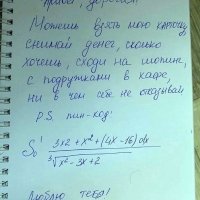 Привет, дорогая!
Можешь взять мою карточку,
снимай денег, сколько
хочешь, сходи на шопинг,
с подружками в кафе,
ни в чем себе не отказывай
P.S. пин-код:
S₀¹ 3x2 + x² + (4x - 16)dx
³√x² - 3x + 2
Люблю тебя!